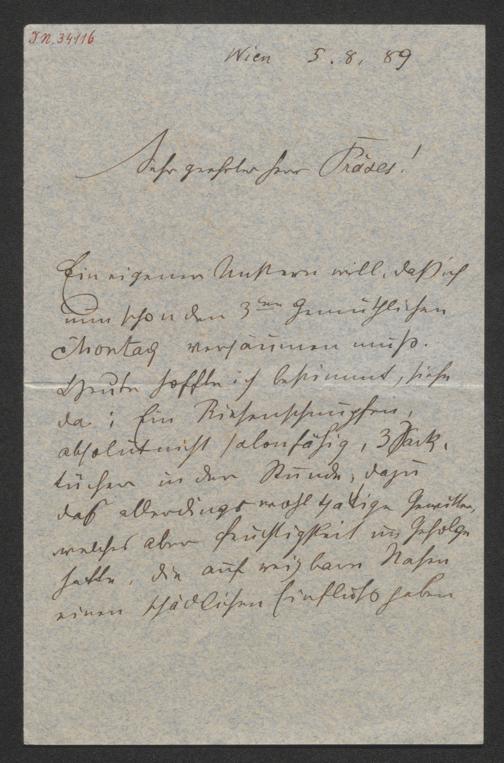 I.N. 34116
Wien 5. 8. 89
Sehr geehrter Herr Präses!
Ein eigener Unstern will, daß ich
nun schon den 3ten Gemüthlichen
Montag versäumen muß.
Heute hoffte ich bestimmt, siehe
da; Ein Riesenschnupfen,
absolut nicht salonfähig, 3 Sack-
tücher in der Stunde, dazu
das allerdings wohltätige Gewitter,
welches aber Feuchtigkeit im Gefolge
hatte, die auf reizbare Nasen
einen schädlichen Einfluß haben